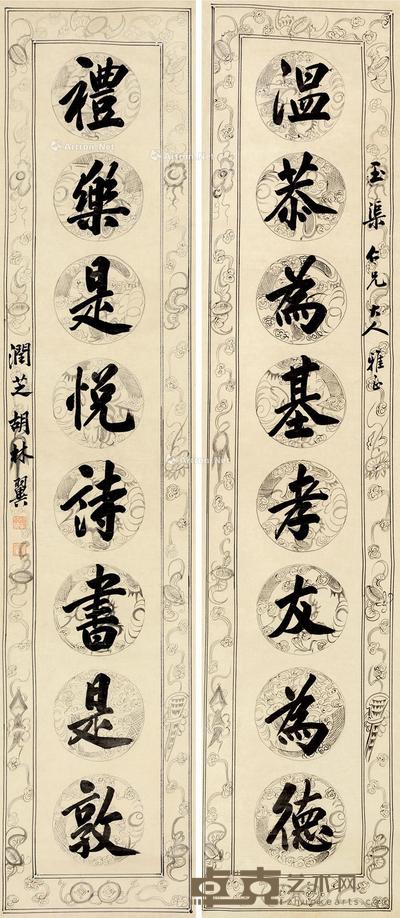 玉渠仁兄大人雅正
溫恭為基孝友為德
禮樂是悅詩書是敦
潤芝胡林翼
Artron.Net
Artron.Net
卓克艺术网